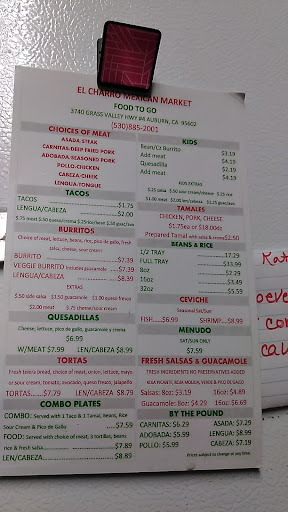 EL CHARRO MEXICAN MARKET
FOOD TO GO
3740 GRASS VALLEY HWY #4 AUBURN, CA 95602
(530)885-2001
CHOICES OF MEAT
ASADA-STEAK
CARNITAS-DEEP FRIED PORK
ADOBADA-SEASONED PORK
POLLO-CHICKEN
CABEZA-CHEEK
LENGUA-TONGUE
TACOS
TACOS $1.75
LENGUA/CABEZA $2.00
BURRITOS
Choice of meat, lettuce, beans, rice, pico de gallo, fresh
salsa, cheese, sour cream
BURRITO $7.39
VEGGIE BURRITO Includes guacamole $7.39
LENGUA/CABEZA $8.39
EXTRAS
$.50 side salsa $3.50 guacamole $1.00 queso fresco
$2.00 meat $.75 cheese/sour cream
QUESADILLAS
Cheese, lettuce, pico de gallo, guacamole y crema
$6.99
W/MEAT $7.99 LEN/CABEZA $8.99
TORTAS
Fresh telera bread, choice of meat, onion, lettuce, mayo
or sour cream, tomato, avocado, queso fresco, jalapeño
TORTAS $7.79 LEN/CABEZA $8.79
COMBO PLATES
COMBO: Served with 1 Taco & 1 Tamal, Beans, Rice
Sour Cream & Pico de Gallo $7.59
FOOD: Served with choice of meat, 3 tortillas, beans
rice & fresh salsa $7.89
LEN/CABEZA $8.89
KIDS
Bean/Cz Burrito $3.19
Add meat $4.19
Quesadilla $2.19
Add meat $4.19
KIDS EXTRAS
$.25 salsa $.50 sour cream/cheese $.25 rice
$1.00 meat $2.00 len/cabeza $1.25 guacamole
TAMALES
CHICKEN, PORK, CHEESE
$1.75ea or $18.00dz
Prepared Tamal with salsa & crema $2.50
BEANS & RICE
1/2 TRAY 17.29
FULL TRAY $33.99
8oz $2.29
16oz $3.49
32oz $5.59
CEVICHE
Seasonal Sat/Sun
FISH $6.99 SHRIMP $8.99
MENUDO
SAT/SUN ONLY
$7.59
FRESH SALSAS & GUACAMOLE
FRESH INGREDIENTS NO PRESERVATIVES ADDED
ROJA PICANTE, ROJA MOLIDA, VERDE & PICO DE GALLO
Salsas: 8oz: $3.19 16oz: $4.89
Guacamole: 8oz: $4.29 16oz: $6.69
BY THE POUND
CARNITAS: $6.29 ASADA: $7.29
ADOBADA: $5.99 LENGUA: $8.99
POLLO: $5.99 CABEZA: $7.19
Prices subject to change at any time.